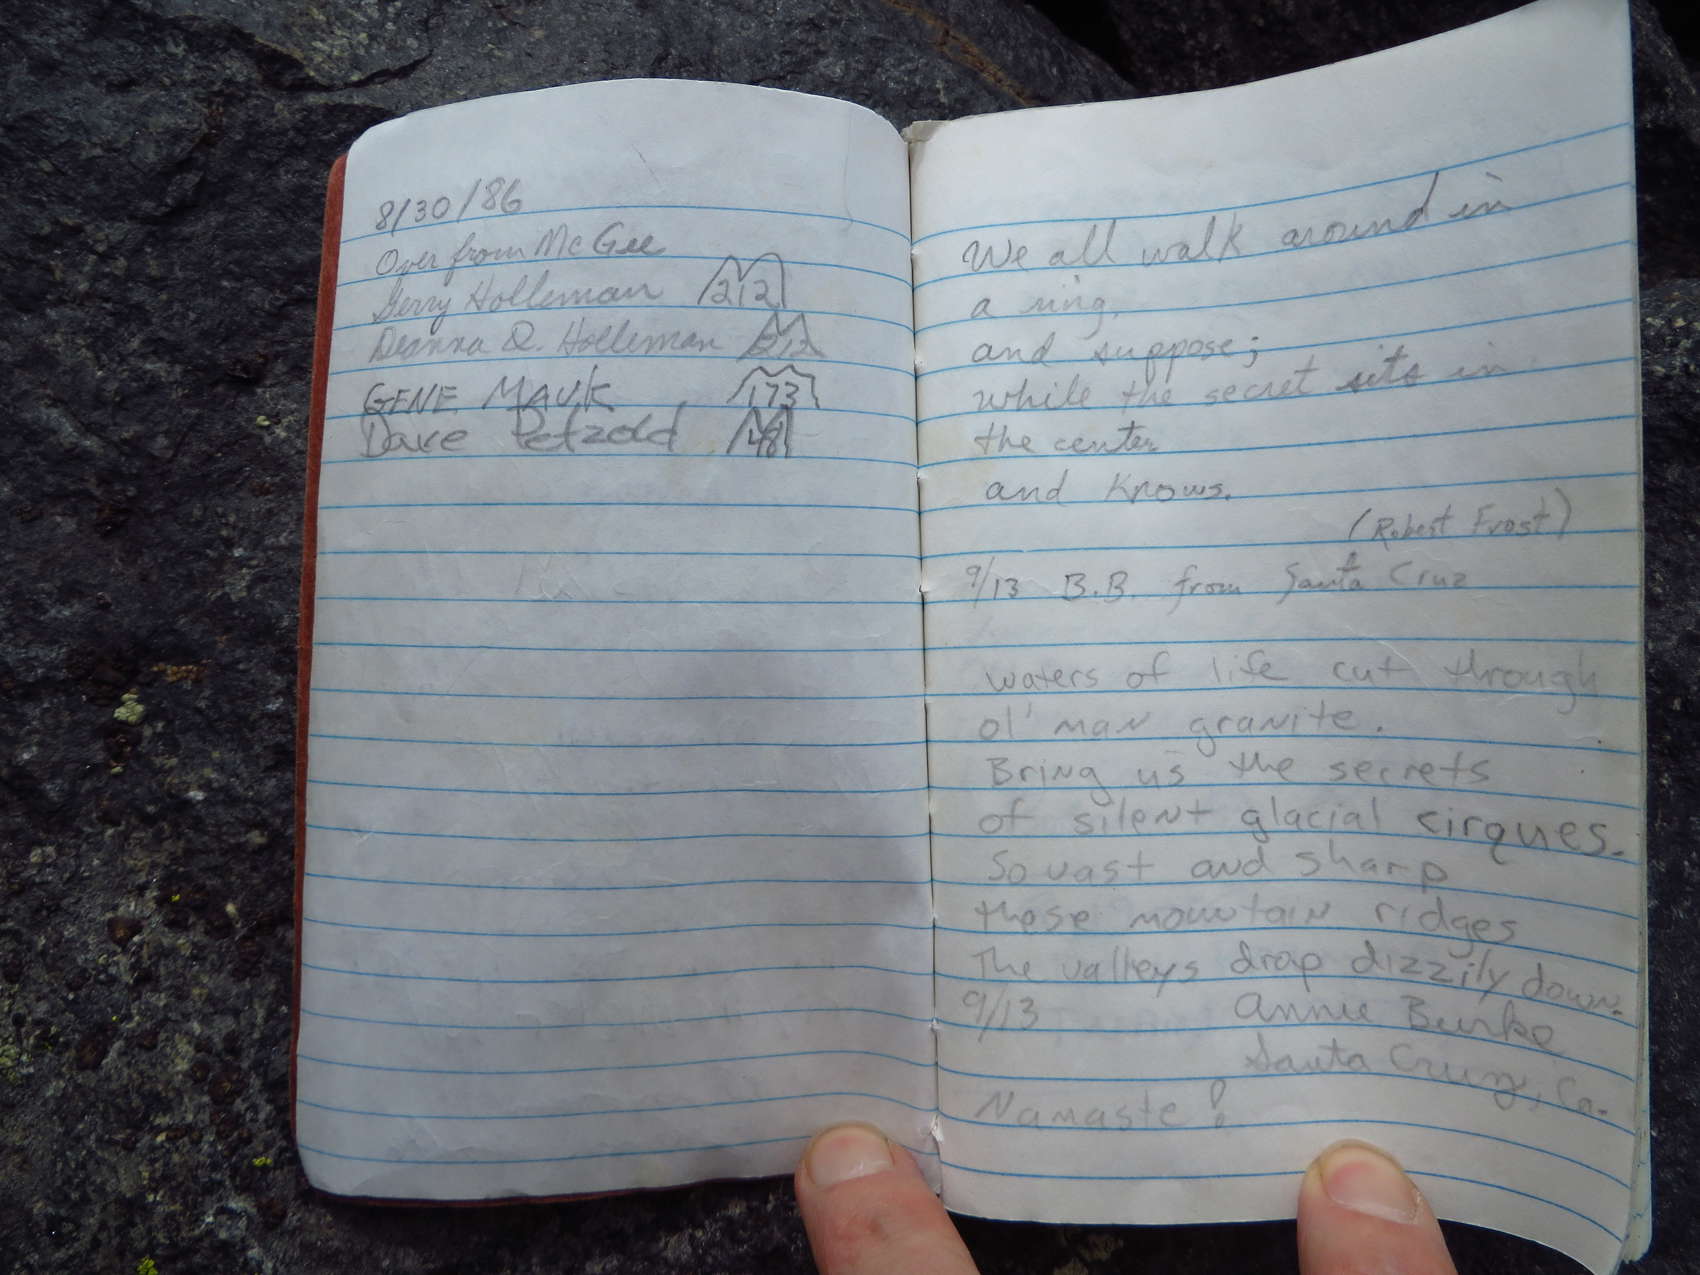 8/30/86
Over from McGee
Gerry Holleman 212
Deanna Q. Holleman 212
GENE MAUK 173
Dave Petzold 148
We all walk around in
a ring,
and suppose;
while the secret sits in
the center
and knows.
(Robert Frost)
9/13 B.B. from Santa Cruz
waters of life cut through
ol' man granite.
Bring us the secrets
of silent glacial cirques.
So vast and sharp
these mountain ridges
The valleys drop dizzily down.
9/13 Annie Burke
Santa Cruz, Ca.
Namaste!